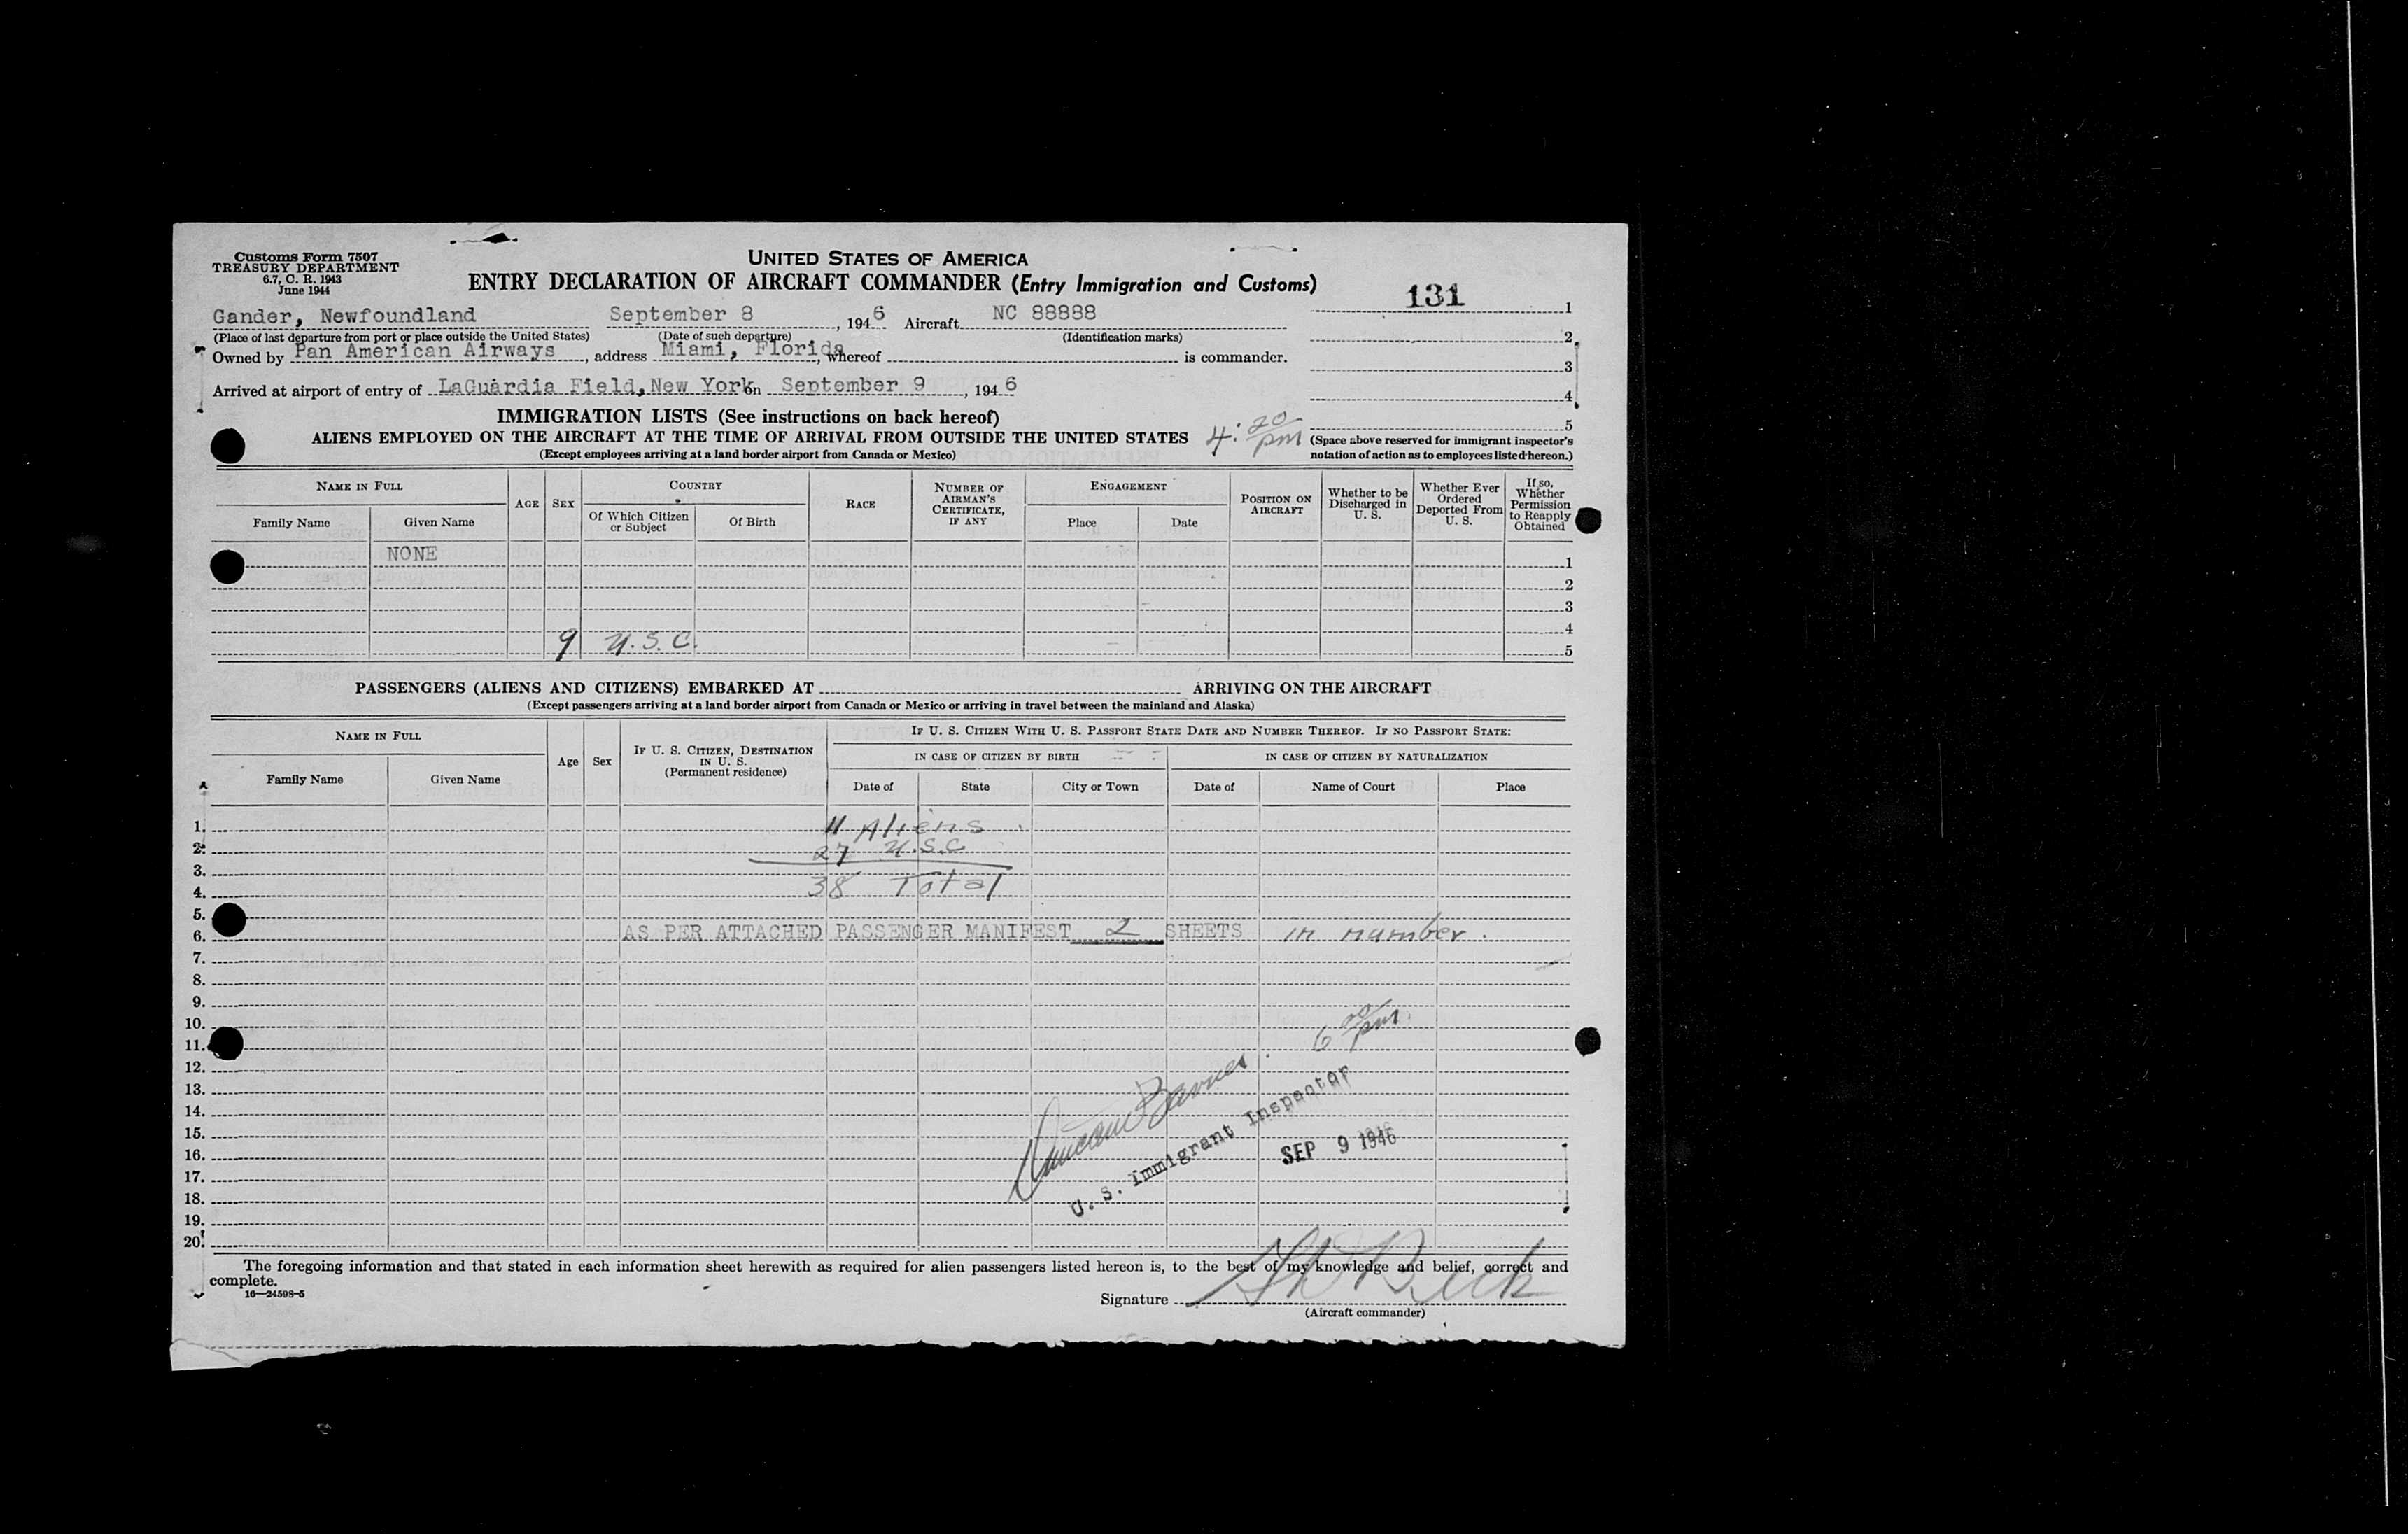 Customs Form 7507
TREASURY DEPARTMENT
6.7, C. R. 1943
June 1944
UNITED STATES OF AMERICA
ENTRY DECLARATION OF AIRCRAFT COMMANDER (Entry Immigration and Customs)
131
1
2
3
4
5
Gander, Newfoundland September 8, 1946 Aircraft NC 88888
(Place of last departure from port or place outside the United States) (Date of such departure) (Identification marks)
Owned by Pan American Airways, address Miami, Florida, whereof is commander.
Arrived at airport of entry of LaGuardia Field, New York on September 9, 1946
IMMIGRATION LISTS (See instructions on back hereof)
ALIENS EMPLOYED ON THE AIRCRAFT AT THE TIME OF ARRIVAL FROM OUTSIDE THE UNITED STATES 4:20 pm
(Except employees arriving at a land border airport from Canada or Mexico)
(Space above reserved for immigrant inspector's
notation of action as to employees listed hereon.)
NAME IN FULL
Family Name Given Name
AGE SEX
COUNTRY
Of Which Citizen or Subject
Of Birth
RACE
NUMBER OF AIRMAN'S CERTIFICATE, IF ANY
ENGAGEMENT
Place Date
POSITION ON AIRCRAFT
Whether to be Discharged in U. S.
Whether Ever Ordered Deported From U. S.
If so, Whether Permission to Reapply Obtained
NONE 1
2
3
4
9 U.S.C. 5
PASSENGERS (ALIENS AND CITIZENS) EMBARKED AT ARRIVING ON THE AIRCRAFT
(Except passengers arriving at a land border airport from Canada or Mexico or arriving in travel between the mainland and Alaska)
NAME IN FULL
Family Name Given Name
Age Sex
IF U. S. CITIZEN, DESTINATION IN U. S.
(Permanent residence)
IF U. S. CITIZEN WITH U. S. PASSPORT STATE DATE AND NUMBER THEREOF. IF NO PASSPORT STATE:
IN CASE OF CITIZEN BY BIRTH IN CASE OF CITIZEN BY NATURALIZATION
Date of State City or Town Date of Name of Court Place
1. 11 Aliens
2. 27 U.S.C
3.
4. 38 Total
5.
6. AS PER ATTACHED PASSENGER MANIFEST 2 SHEETS in number.
7.
8.
9.
10.
11. 6 00 pm.
12.
13. Duncan Barnes
14.
15. U. S. Immigrant Inspector
16. SEP 9 1946
17.
18.
19.
20.
The foregoing information and that stated in each information sheet herewith as required for alien passengers listed hereon is, to the best of my knowledge and belief, correct and
complete.
16—24598-5
Signature Beck
(Aircraft commander)